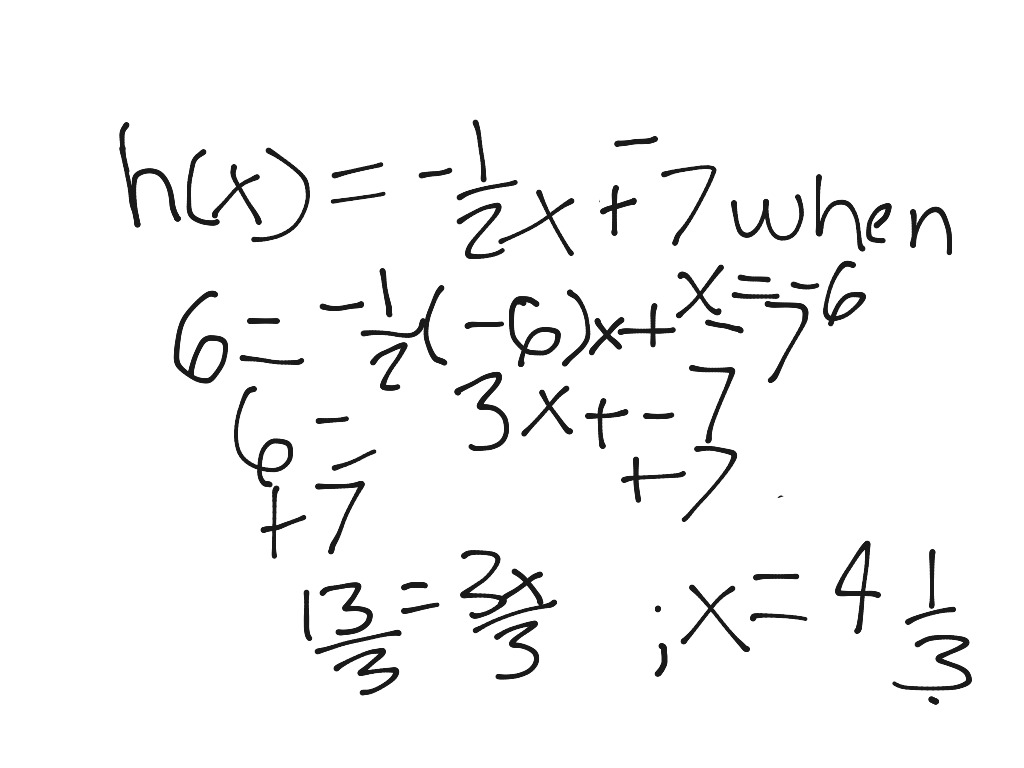 h(x) = -1/2x + -7 when
x = -6
6 = -1/2(-6)x + -7
6 = 3x + -7
+7 +7
13/3 = 3x/3 ; x = 4 1/3.